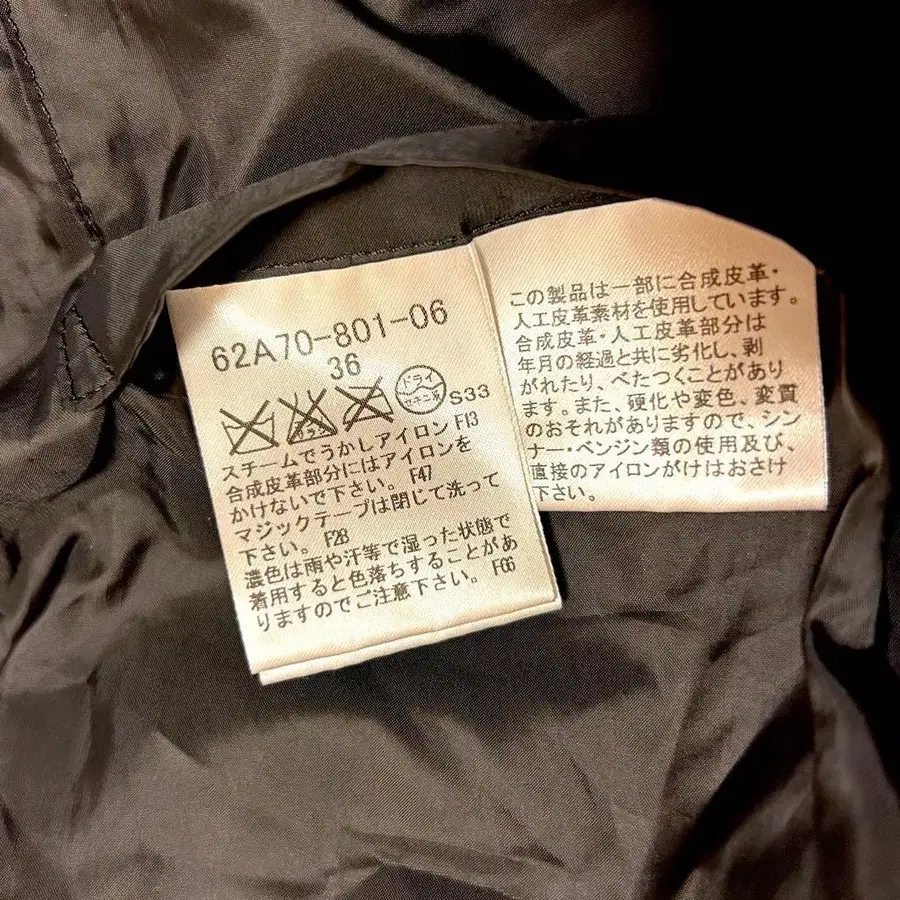 62A70-801-06
36
ドライ
S33
スチームでうかしアイロンF13
合成皮革部分にはアイロンを
かけないで下さい。F47
マジックテープは閉じて洗って
下さい。F28
濃色は雨や汗等で湿った状態で
着用すると色落ちすることがあ
りますのでご注意下さい。F06
この製品は一部に合成皮革・
人工皮革素材を使用しています。
合成皮革・人工皮革部分は
年月の経過と共に劣化し、剥
がれたり、べたつくことがあり
ます。また、硬化や変色、変質
のおそれがありますので、シン
ナー・ベンジン類の使用及び、
直接のアイロンがけはおさけ
下さい。